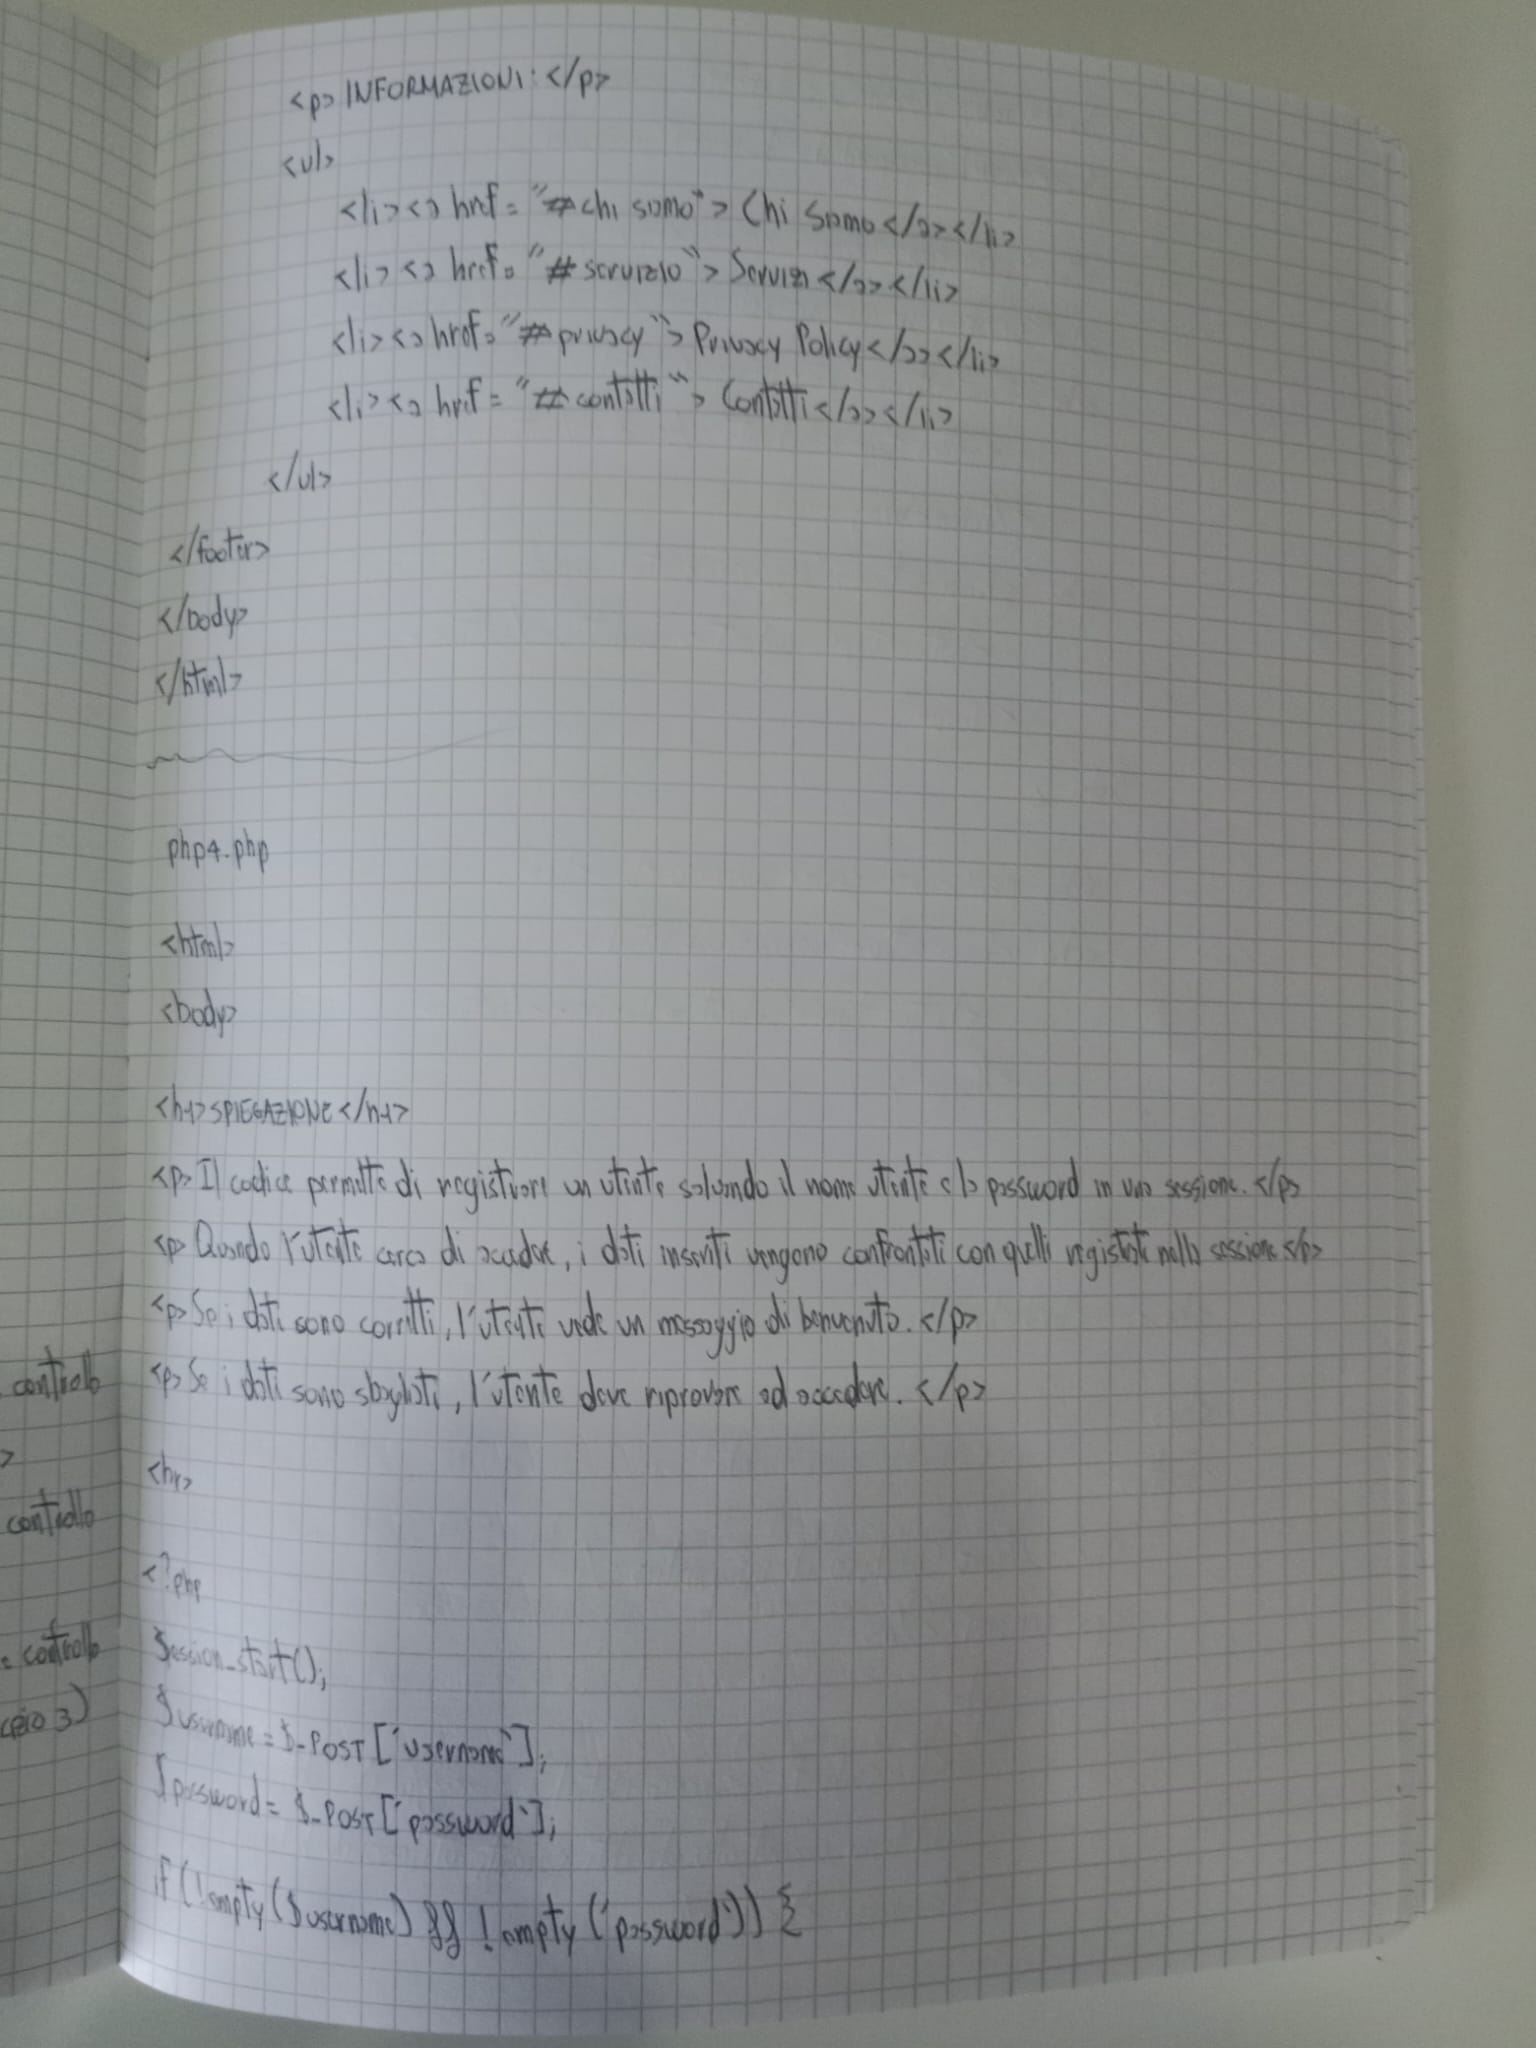 <p> INFORMAZIONI: </p>
<ul>
<li><a href = "#chi sono"> Chi Sono</a></li>
<li><a href = "#servizio"> Servizi</a></li>
<li><a href = "#privacy"> Privacy Policy</a></li>
<li><a href = "#contatti"> Contatti</a></li>
</ul>
</footer>
</body>
</html>
php4.php
<html>
<body>
<h1>SPIEGAZIONE</h1>
<p> Il codice permette di registrare un utente salvando il nome utente e la password in una sessione. </p>
<p> Quando l'utente cerca di accedere, i dati inseriti vengono confrontati con quelli registrati nella sessione </p>
<p> Se i dati sono corretti, l'utente vede un messaggio di benvenuto. </p>
<p> Se i dati sono sbagliati, l'utente deve riprovare ad accedere. </p>
controllo
>
<hr>
controllo
<?php
= controllo
session_start();
3)
$username = $_POST ['username'];
$password = $_POST ['password'];
if (!empty ($username) && !empty ('password')) {